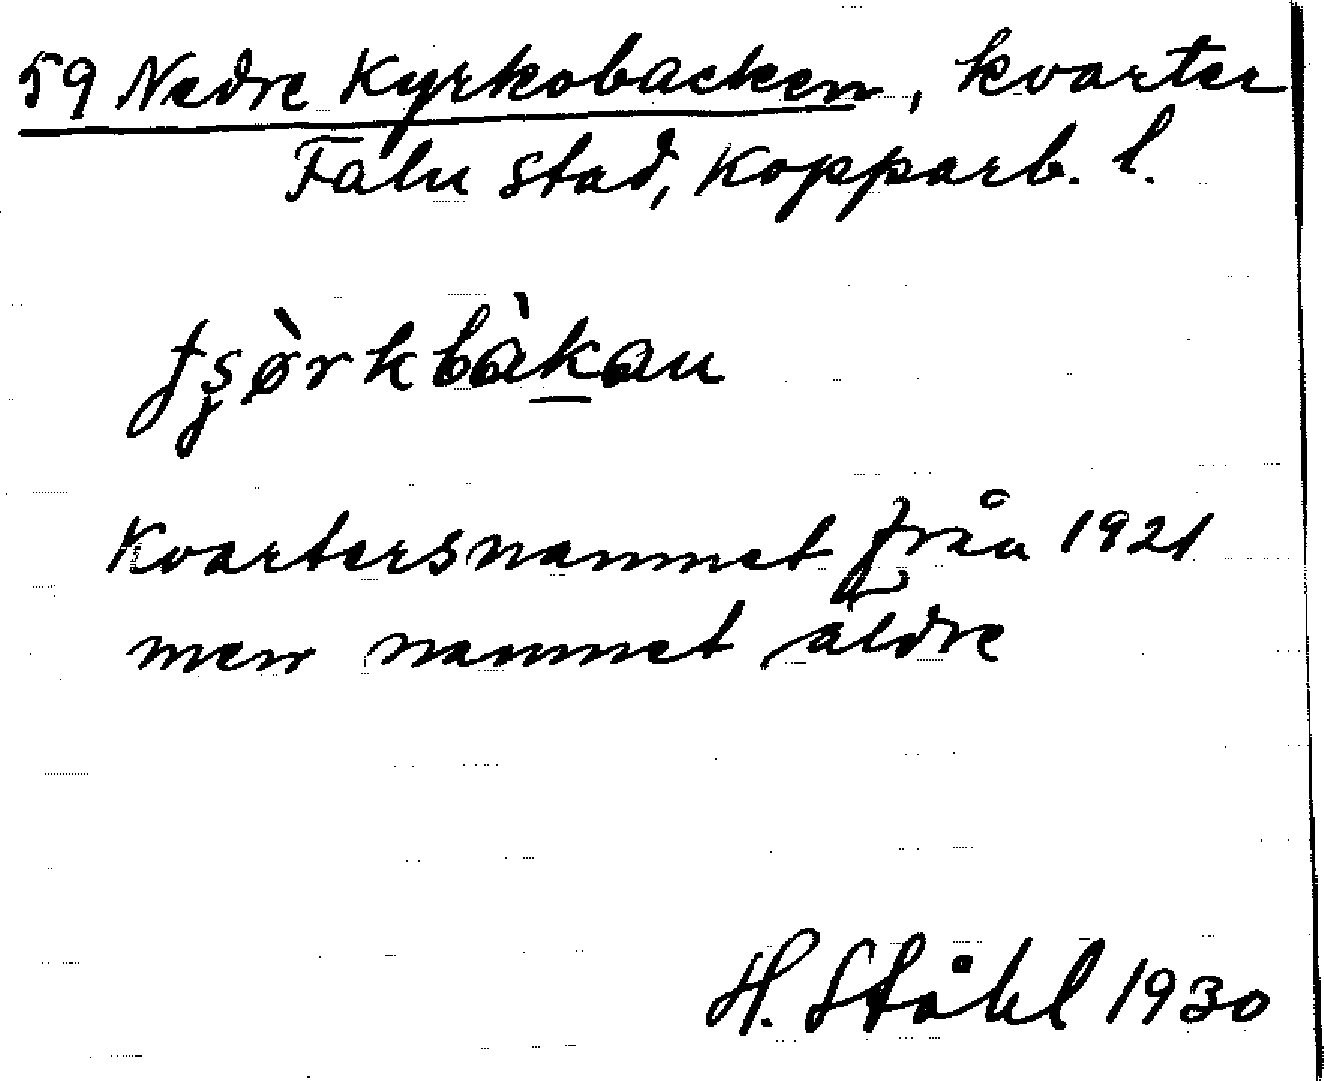 59 Nedre Kyrkobacken, kvarter
Falu stad, Kopparb. l.
Kvartersnamnet från 1921
men namnet äldre
H. Ståhl 1930